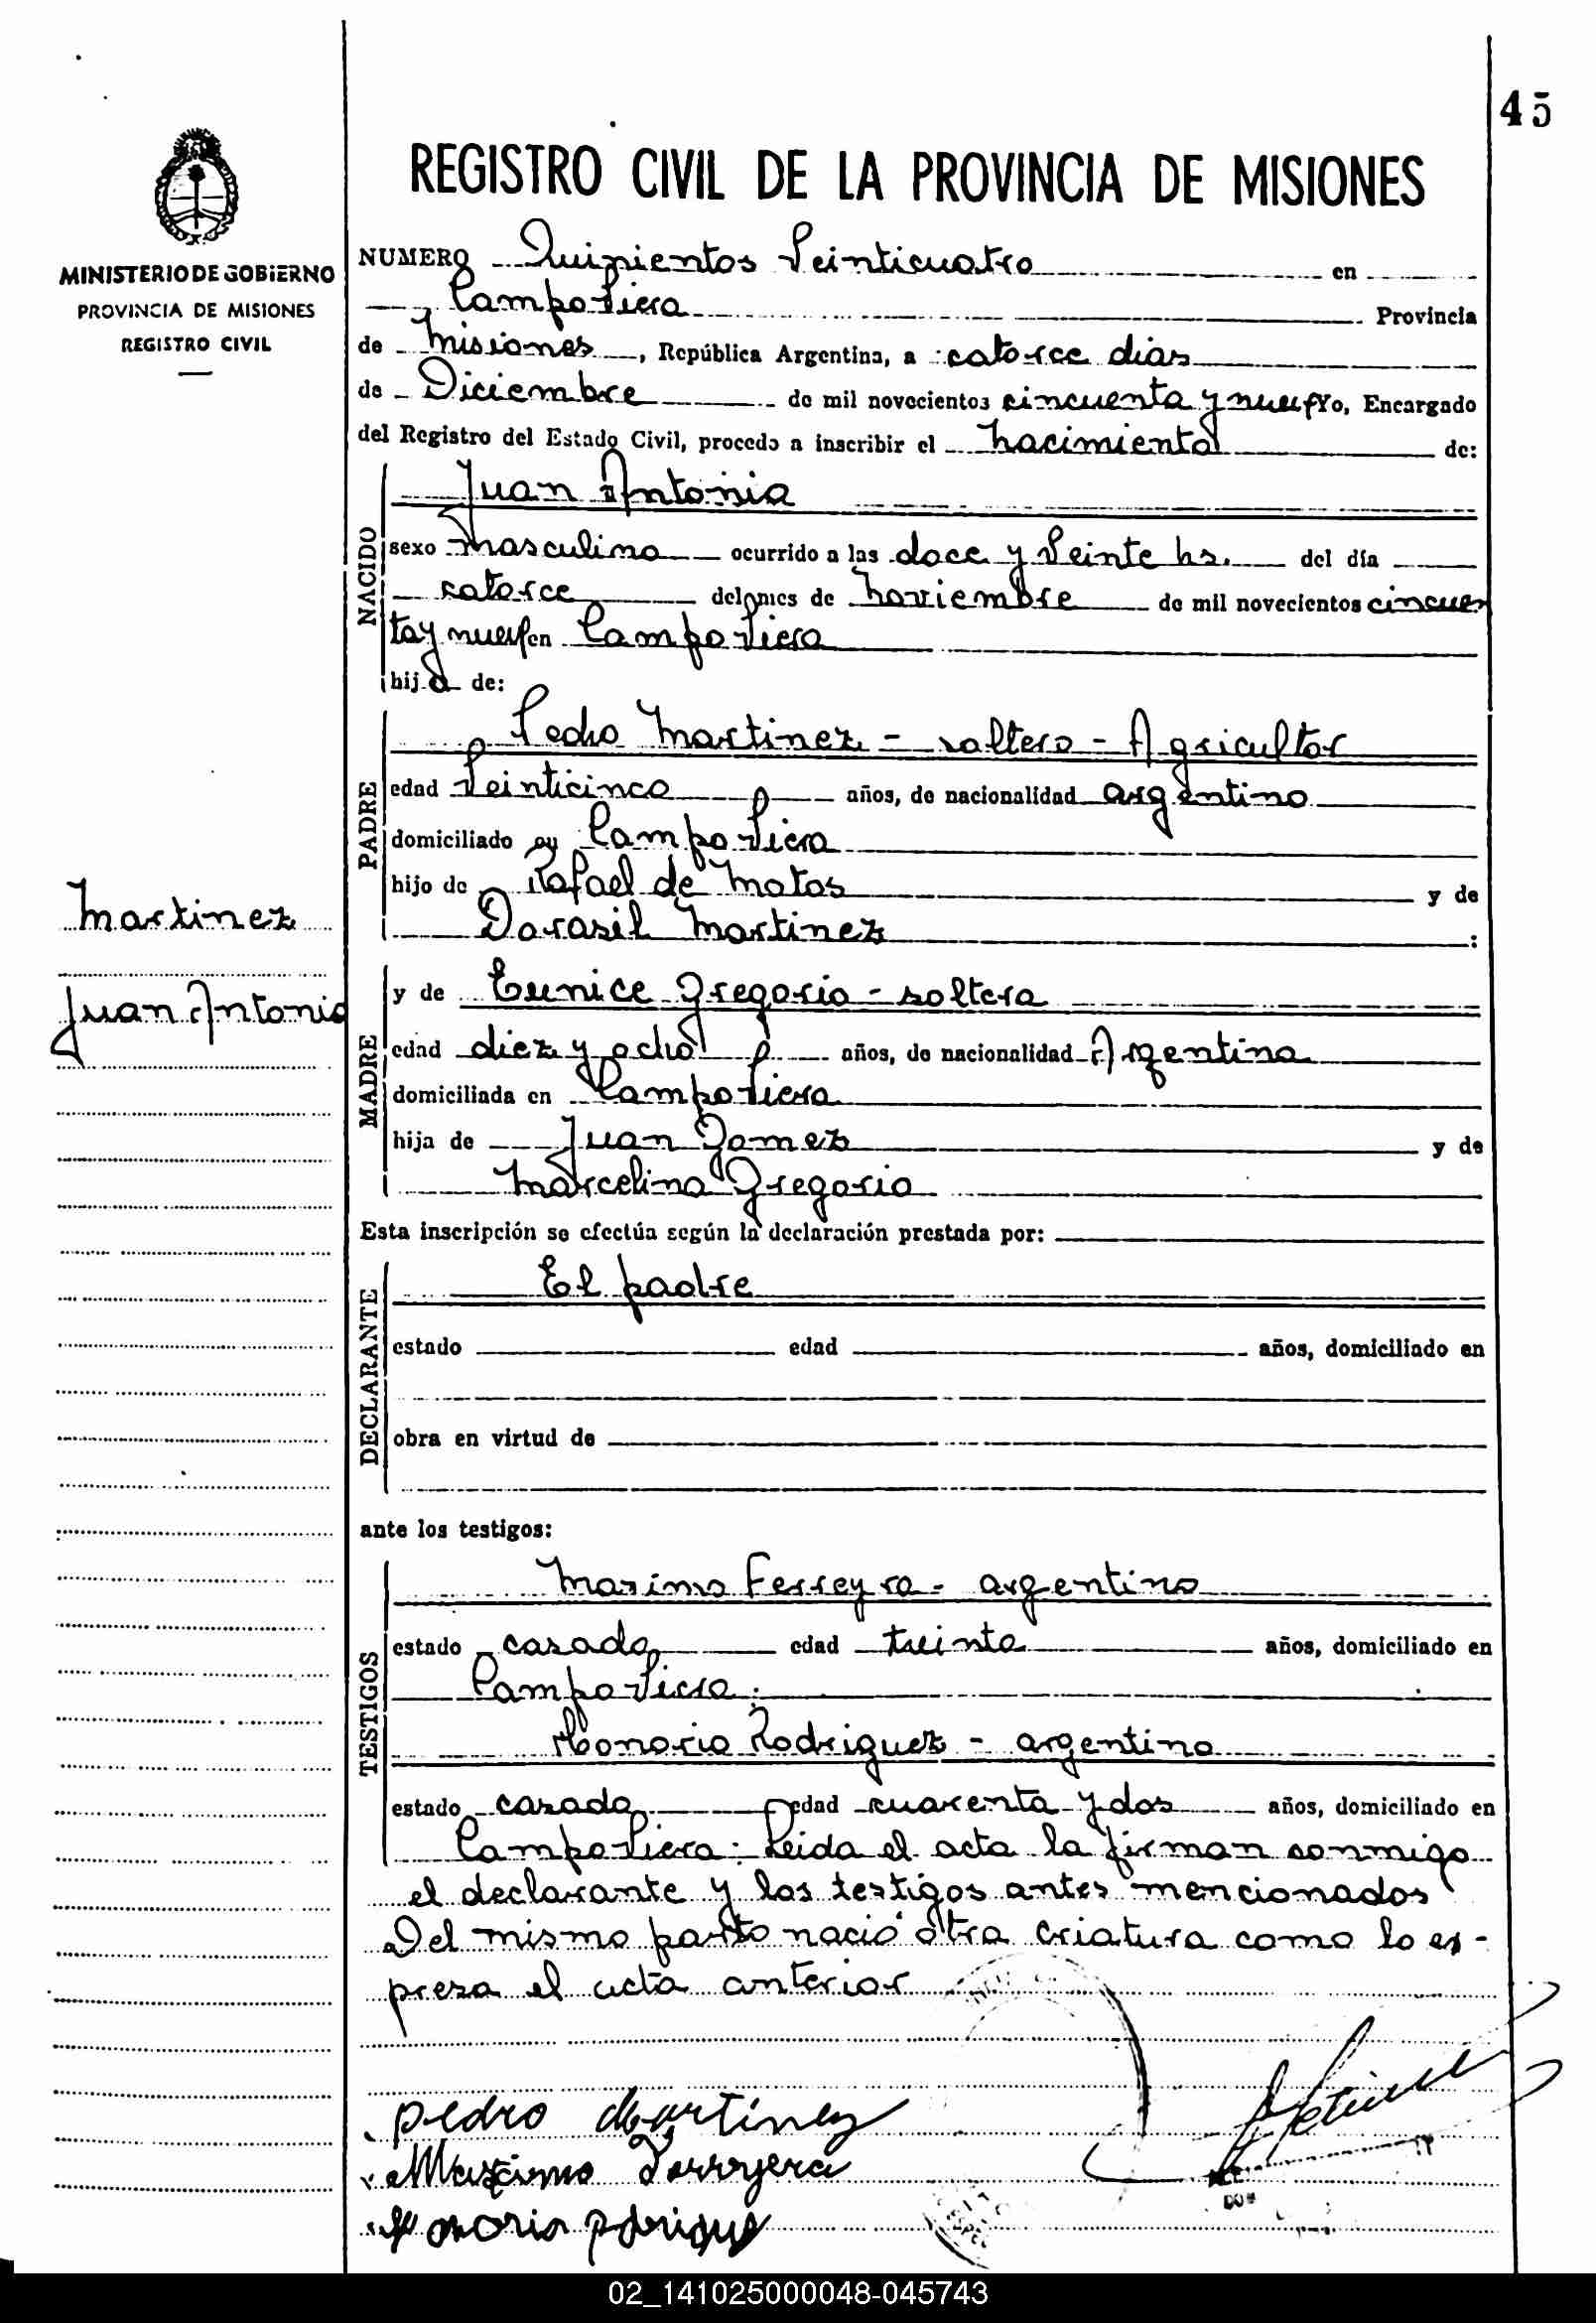 45
REGISTRO CIVIL DE LA PROVINCIA DE MISIONES
MINISTERIO DE GOBIERNO
PROVINCIA DE MISIONES
REGISTRO CIVIL
NUMERO Quinientos Veinticuatro en
Campo Viera Provincia
de Misiones, República Argentina, a catorce dias
de Diciembre de mil novecientos cincuenta y nueve Yo, Encargado
del Registro del Estado Civil, procedo a inscribir el nacimiento de:
NACIDO
Juan Antonio
sexo masculino ocurrido a las doce y Veinte hs. del día
catorce del mes de noviembre de mil novecientos cincuen
ta y nueve en Campo Viera
hijo de:
PADRE
Pedro Martinez - soltero - Agricultor
edad Veinticinco años, de nacionalidad argentino
domiciliado en Campo Viera
hijo de Rafael de Matos y de
Dorasil Martinez :
Martinez
Juan Antonio
MADRE
y de Eunice Gregorio - soltera
edad diez y ocho años, de nacionalidad Argentina
domiciliada en Campo Viera
hija de Juan Gomez y de
Marcelina Gregorio
Esta inscripción se efectúa según la declaración prestada por:
DECLARANTE
El padre
estado edad años, domiciliado en
obra en virtud de
ante los testigos:
TESTIGOS
Maximo Ferreyra - argentino
estado casado edad treinta años, domiciliado en
Campo Viera:
Honorio Rodriguez - argentino
estado casado edad cuarenta y dos años, domiciliado en
Campo Viera: Leida el acta la firman conmigo
el declarante y los testigos antes mencionados
Del mismo parto nació otra criatura como lo ex-
presa el acta anterior
pedro Martinez
Maximo Ferreyera
Honorio Rdrigue
02_141025000048-045743